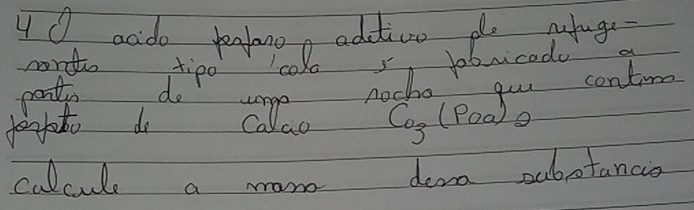 4 O acido fosforo, aditivo de refrige-
rantes tipo 'cola s, fabricado a
partir de uma rocha que contem
fosfato de Calcio Ca3(Po4)2
calcule a massa dessa substancia